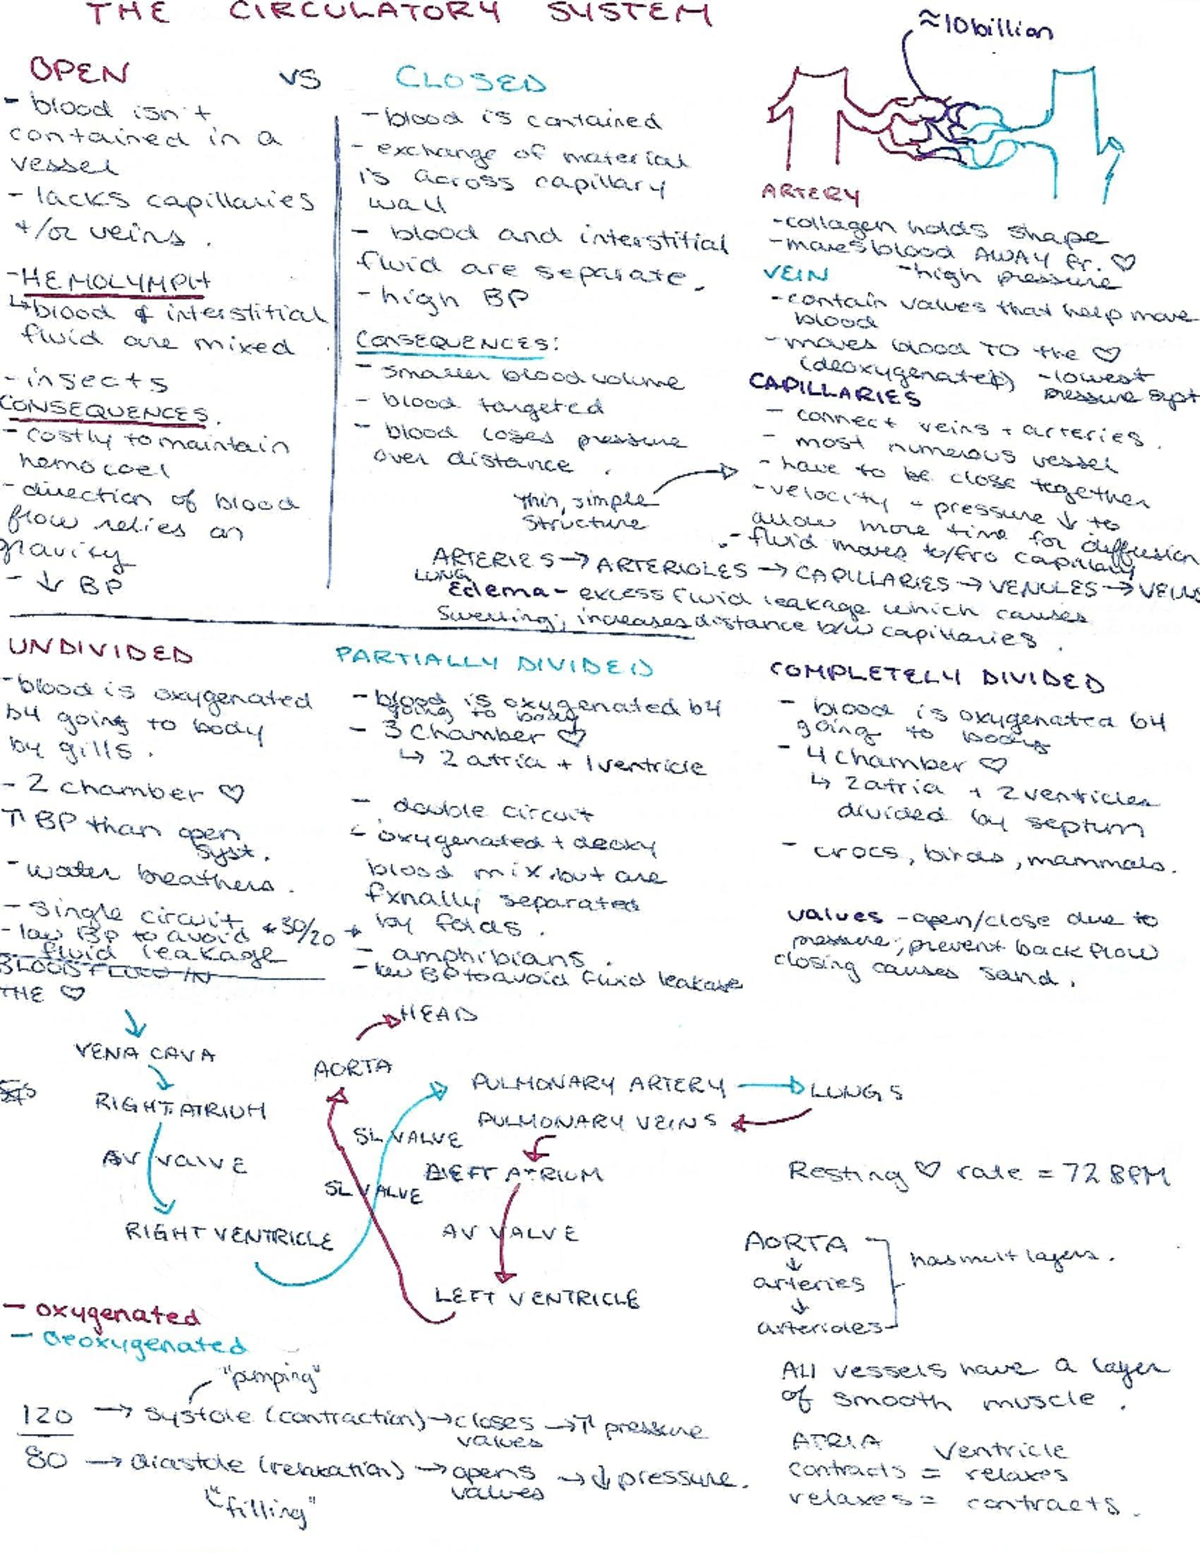 THE CIRCULATORY SYSTEM
OPEN VS CLOSED
- blood isn't
contained in a
vessel
- lacks capillaries
+/or veins.
- HEMOLYMPH
↳ blood & interstitial
fluid are mixed
- insects
CONSEQUENCES.
- costly to maintain
hemocoel
- direction of blood
flow relies on
gravity
- ↓ BP
- blood is contained
- exchange of material
is across capillary
wall
- blood and interstitial
fluid are separate.
- high BP
CONSEQUENCES:
- smaller blood volume
- blood targeted
- blood loses pressure
over distance.
thin, simple
structure
≈10billion
ARTERY
- collagen holds shape
- moves blood AWAY fr. ♡
- high pressure
VEIN
- contain values that help move
blood
- moves blood TO the ♡
(deoxygenated) - lowest
pressure syst
CAPILLARIES
- connect veins + arteries.
- most numerous vessel
- have to be close together
- velocity + pressure ↓ to
allow more time for diffusion
- fluid moves to/fro capillary
ARTERIES → ARTERIOLES → CAPILLARIES → VENULES → VEINS
LUNG
Edema - excess fluid leakage which causes
swelling; increases distance b/w capillaries.
UNDIVIDED
- blood is oxygenated
b4 going to body
by gills.
- 2 chamber ♡
↑ BP than open
syst.
- water breathers.
- single circuit * 30/20 *
- low BP to avoid
fluid leakage
PARTIALLY DIVIDED
- blood is oxygenated b4
going to body
- 3 chamber ♡
↳ 2 atria + 1 ventricle
- double circuit
- oxygenated + deoxy
blood mix, but are
fxnally separated
by folds.
- amphibians.
- low BP to avoid fluid leakage
COMPLETELY DIVIDED
- blood is oxygenated b4
going to body
- 4 chamber ♡
↳ 2 atria + 2 ventricles
divided by septum
- crocs, birds, mammals.
values - open/close due to
pressure; prevent back flow
closing causes sand.
BLOOD FLOW IN
THE ♡
VENA CAVA
RIGHT ATRIUM
AV VALVE
RIGHT VENTRICLE
HEAD
AORTA
SL VALVE
SL VALVE
PULMONARY ARTERY → LUNGS
PULMONARY VEINS
LEFT ATRIUM
AV VALVE
LEFT VENTRICLE
Resting ♡ rate = 72 BPM
AORTA
↓
arteries
↓
arterioles
has mult layers.
- oxygenated
- deoxygenated
"pumping"
120 → systole (contraction) → closes → ↑ pressure
values
80 → diastole (relaxation) → opens → ↓ pressure.
values
"filling"
All vessels have a layer
of smooth muscle.
ATRIA Ventricle
contracts = relaxes
relaxes = contracts.